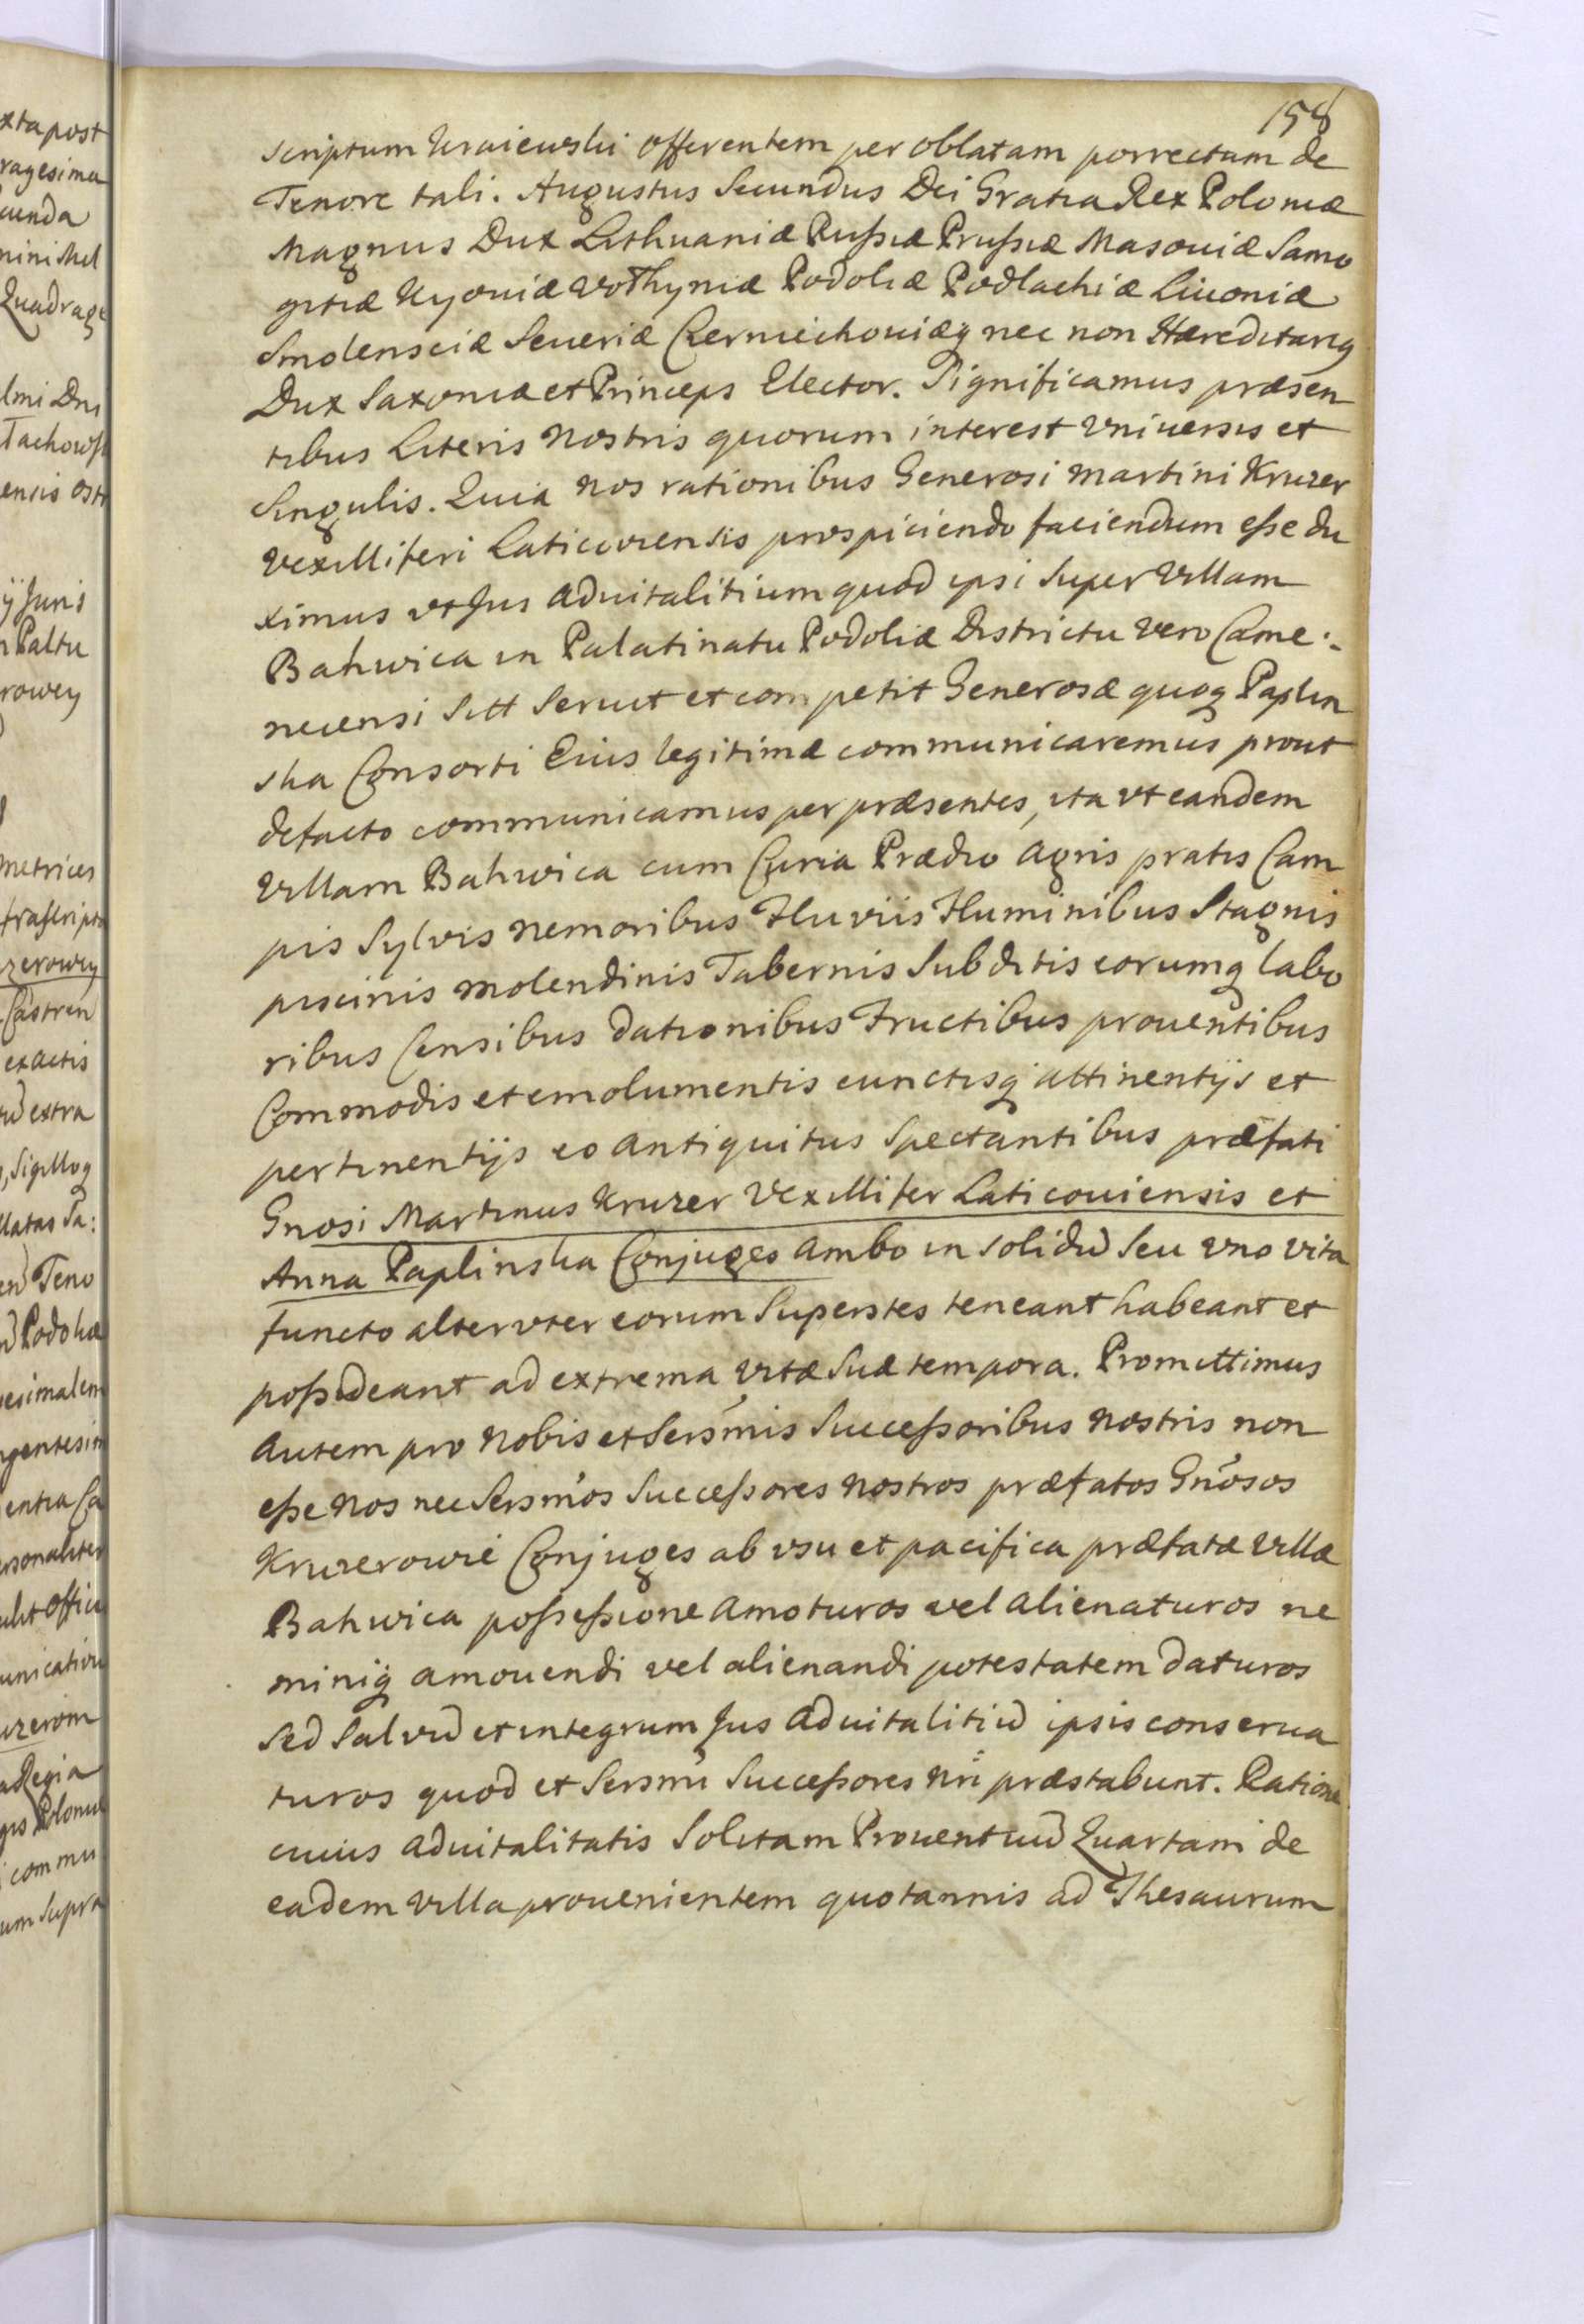 158
scriptum Kraiewski offerentem per oblatam porrectam de
Tenore tali. Augustus Secundus Dei Gratia Rex Poloniæ
Magnus Dux Lithuaniæ Russiæ Prussiæ Masouiæ Samo
gitiæ Kyouiæ Volhyniæ Podoliæ Podlachiæ Liuoniæ
Smolensciæ Seueriæ Czerniechouiæq nec non Hæreditariq
Dux Saxoniæ et Princeps Elector. Significamus præsen
tibus Literis Nostris quorum interest Vniuersis et
Singulis. Quia Nos rationibus Generosi Martini Kruzer
Vexilliferi Laticouiensis prospiciendo faciendum esse du
ximus vt Jus Aduitalitium quod ipsi Super Villam
Bakwica in Palatinatu Podoliæ Districtu vero Came:
necensi Sitt Seruit et competit Generosæ quoq Paplin
ska Consorti Eius legitimæ communicaremus prout
defacto communicamus per præsentes, ita vt eandem
Villam Bakwica cum Curia Prædio Agris pratis Cam
pis Sylvis nemoribus Fluviis Fluminibus Stagnis
piscinis molendinis Tabernis Subditis eorumq labo
ribus Censibus dationibus Fructibus prouentibus
Commodis et emolumentis cunctisq attinentijs et
pertinentijs eo antiquitus Spectantibus præfati
Gnosi Martinus Kruzer Vexillifer Laticouiensis et
Anna Paplinska Conjuges Ambo in solidũ Seu vno vita
functo alteruter eorum Superstes teneant habeant et
possideant ad extrema vitæ Suæ tempora. Promittimus
Autem pro Nobis et Sersmis Successoribus Nostris non
esse Nos nec Sersmos Successores Nostros præfatos Gnosos
Kruzerowie Conjuges ab vsu et pacifica præfatæ Villæ
Bakwica possessione Amoturos vel Alienaturos ne
miniq amouendi vel alienandi potestatem daturos
Sed Salvũ et integrum Jus Aduitalitiũ ipsis conserua
turos quod et Sersmi Successores Nri præstabunt. Ratione
cuius Aduitalitatis Solitam Prouentuũ Quartam de
eadem Villa prouenientem quotannis ad Thesaurum